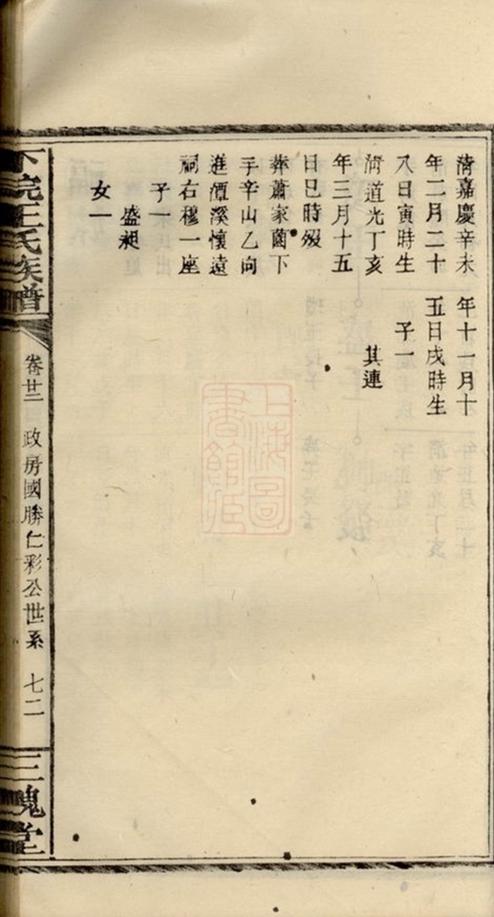 清嘉慶辛未
年二月二十
八日寅時生
清道光丁亥
年三月十五
日巳時歿
葬蕭家下
手辛山乙向
進溪懷遠
祠右穆一座
子一
盛昶
女一
年十一月十
五日戌時生
子一
其連
王氏族譜
卷廿二 政房國勝仁彩公世系 七二
三槐堂
上海圖
書館藏